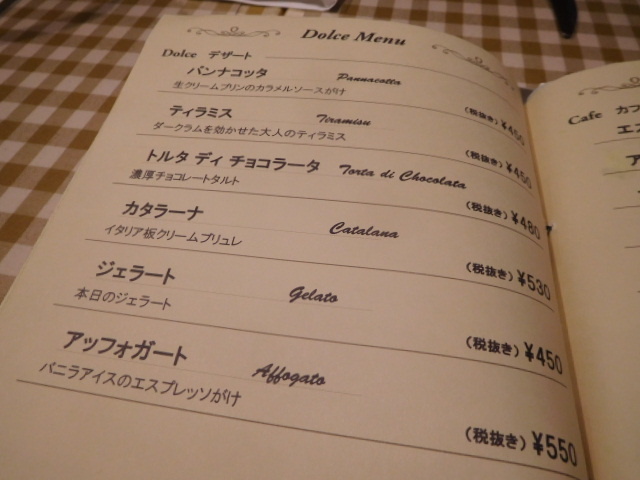 Dolce Menu
Dolce デザート
パンナコッタ Pannacotta
生クリームプリンのカラメルソースがけ
(税抜き) ¥450
ティラミス Tiramisu
ダークラムを効かせた大人のティラミス
(税抜き) ¥450
トルタ ディ チョコラータ Torta di Chocolata
濃厚チョコレートタルト
(税抜き) ¥480
カタラーナ Catalana
イタリア板クリームブリュレ
(税抜き) ¥530
ジェラート Gelato
本日のジェラート
(税抜き) ¥450
アッフォガート Affogato
バニラアイスのエスプレッソがけ
(税抜き) ¥550
Cafe カフ
エス